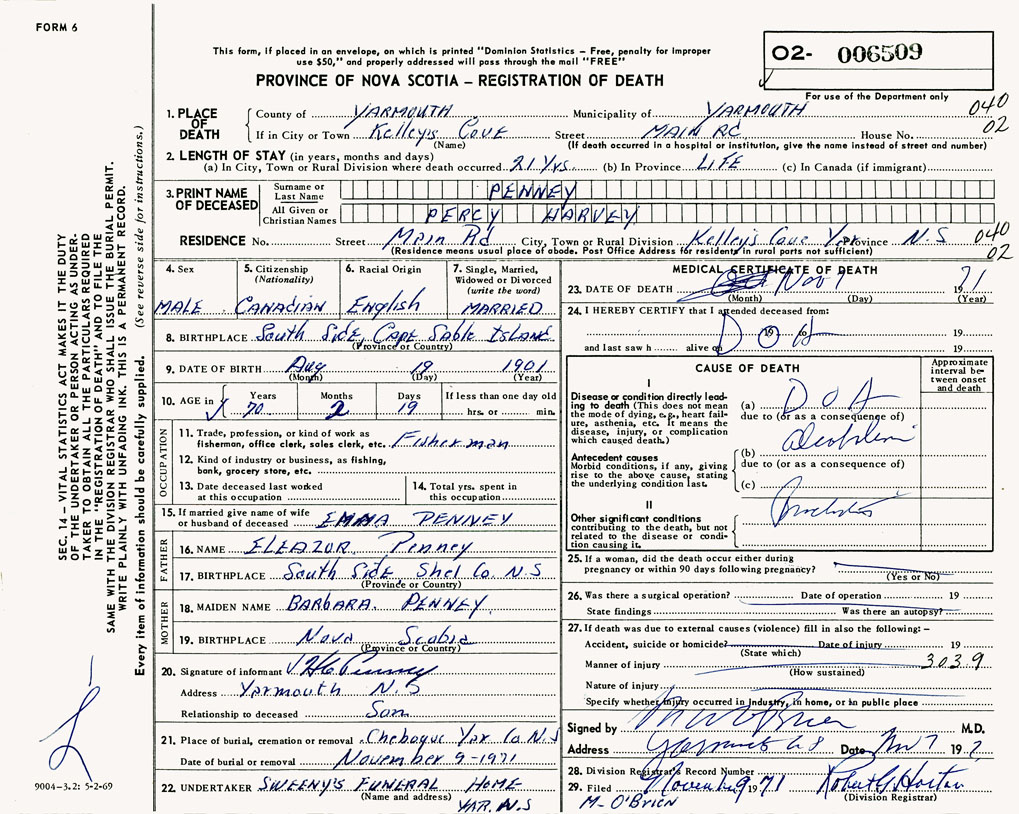 FORM 6
This form, if placed in an envelope, on which is printed "Dominion Statistics – Free, penalty for improper
use $50," and properly addressed will pass through the mail "FREE"
PROVINCE OF NOVA SCOTIA – REGISTRATION OF DEATH
O2- 006509
For use of the Department only
040
02
1. PLACE OF DEATH
County of YARMOUTH Municipality of YARMOUTH
If in City or Town Kelley's Cove Street MAIN Rd House No.
(Name) (If death occurred in a hospital or institution, give the name instead of street and number)
2. LENGTH OF STAY (in years, months and days)
(a) In City, Town or Rural Division where death occurred 21 Yrs. (b) In Province LIFE (c) In Canada (if immigrant)
3. PRINT NAME OF DECEASED
Surname or Last Name PENNEY
All Given or Christian Names PERCY HARVEY
RESIDENCE No. Street Main Rd City, Town or Rural Division Kelley's Cove Yar Province N.S
(Residence means usual place of abode. Post Office Address for residents in rural parts not sufficient)
040
02
4. Sex MALE
5. Citizenship (Nationality) CANADIAN
6. Racial Origin English
7. Single, Married, Widowed or Divorced (write the word) MARRIED
8. BIRTHPLACE South Side, Cape Sable Island
(Province or Country)
9. DATE OF BIRTH Aug 19 1901
(Month) (Day) (Year)
10. AGE in Years 70 Months 2 Days 19 If less than one day old hrs. or min.
OCCUPATION
11. Trade, profession, or kind of work as
fisherman, office clerk, sales clerk, etc. Fisherman
12. Kind of industry or business, as fishing,
bank, grocery store, etc.
13. Date deceased last worked
at this occupation
14. Total yrs. spent in
this occupation
15. If married give name of wife
or husband of deceased EMMA PENNEY
FATHER
16. NAME ELEAZOR Penney
17. BIRTHPLACE South Side, Shel Co. N.S
(Province or Country)
MOTHER
18. MAIDEN NAME BARBARA. PENNEY
19. BIRTHPLACE Nova Scotia
(Province or Country)
20. Signature of informant
Address Yarmouth N.S
Relationship to deceased Son
21. Place of burial, cremation or removal Chebogue Yar Co N.S
Date of burial or removal November 9-1971
22. UNDERTAKER SWEENY'S FUNERAL HOME
(Name and address) YAR. N.S
MEDICAL CERTIFICATE OF DEATH
23. DATE OF DEATH Nov 7 1971
(Month) (Day) (Year)
24. I HEREBY CERTIFY that I attended deceased from:
19 19
and last saw h alive on 19
CAUSE OF DEATH
Approximate interval between onset and death
I
Disease or condition directly leading
to death (This does not mean
the mode of dying, e.g., heart failure,
asthenia, etc. It means the
disease, injury, or complication
which caused death.)
(a) DOA
due to (or as a consequence of)
Antecedent causes
Morbid conditions, if any, giving
rise to the above cause, stating
the underlying condition last.
(b)
due to (or as a consequence of)
(c)
II
Other significant conditions
contributing to the death, but not
related to the disease or condition
causing it.
25. If a woman, did the death occur either during
pregnancy or within 90 days following pregnancy?
(Yes or No)
26. Was there a surgical operation? Date of operation 19
State findings Was there an autopsy?
27. If death was due to external causes (violence) fill in also the following: –
Accident, suicide or homicide? Date of injury 19
(State which)
Manner of injury 3039
(How sustained)
Nature of injury
Specify whether injury occurred in Industry, in home, or in public place
Signed by M.D.
Address Date Nov 7 19
28. Division Registrar's Record Number
29. Filed November 9 1971 Robert G. Horton
(Division Registrar)
M- O'BRIEN
SEC. 14 – VITAL STATISTICS ACT MAKES IT THE DUTY
OF THE UNDERTAKER OR PERSON ACTING AS UNDER-
TAKER TO OBTAIN ALL THE PARTICULARS REQUIRED
IN THE "REGISTRATION OF DEATH" AND TO FILE THE
SAME WITH THE DIVISION REGISTRAR WHO SHALL ISSUE THE BURIAL PERMIT.
WRITE PLAINLY WITH UNFADING INK. THIS IS A PERMANENT RECORD.
Every item of information should be carefully supplied. (See reverse side for instructions.)
9004-3.2: 5-2-69